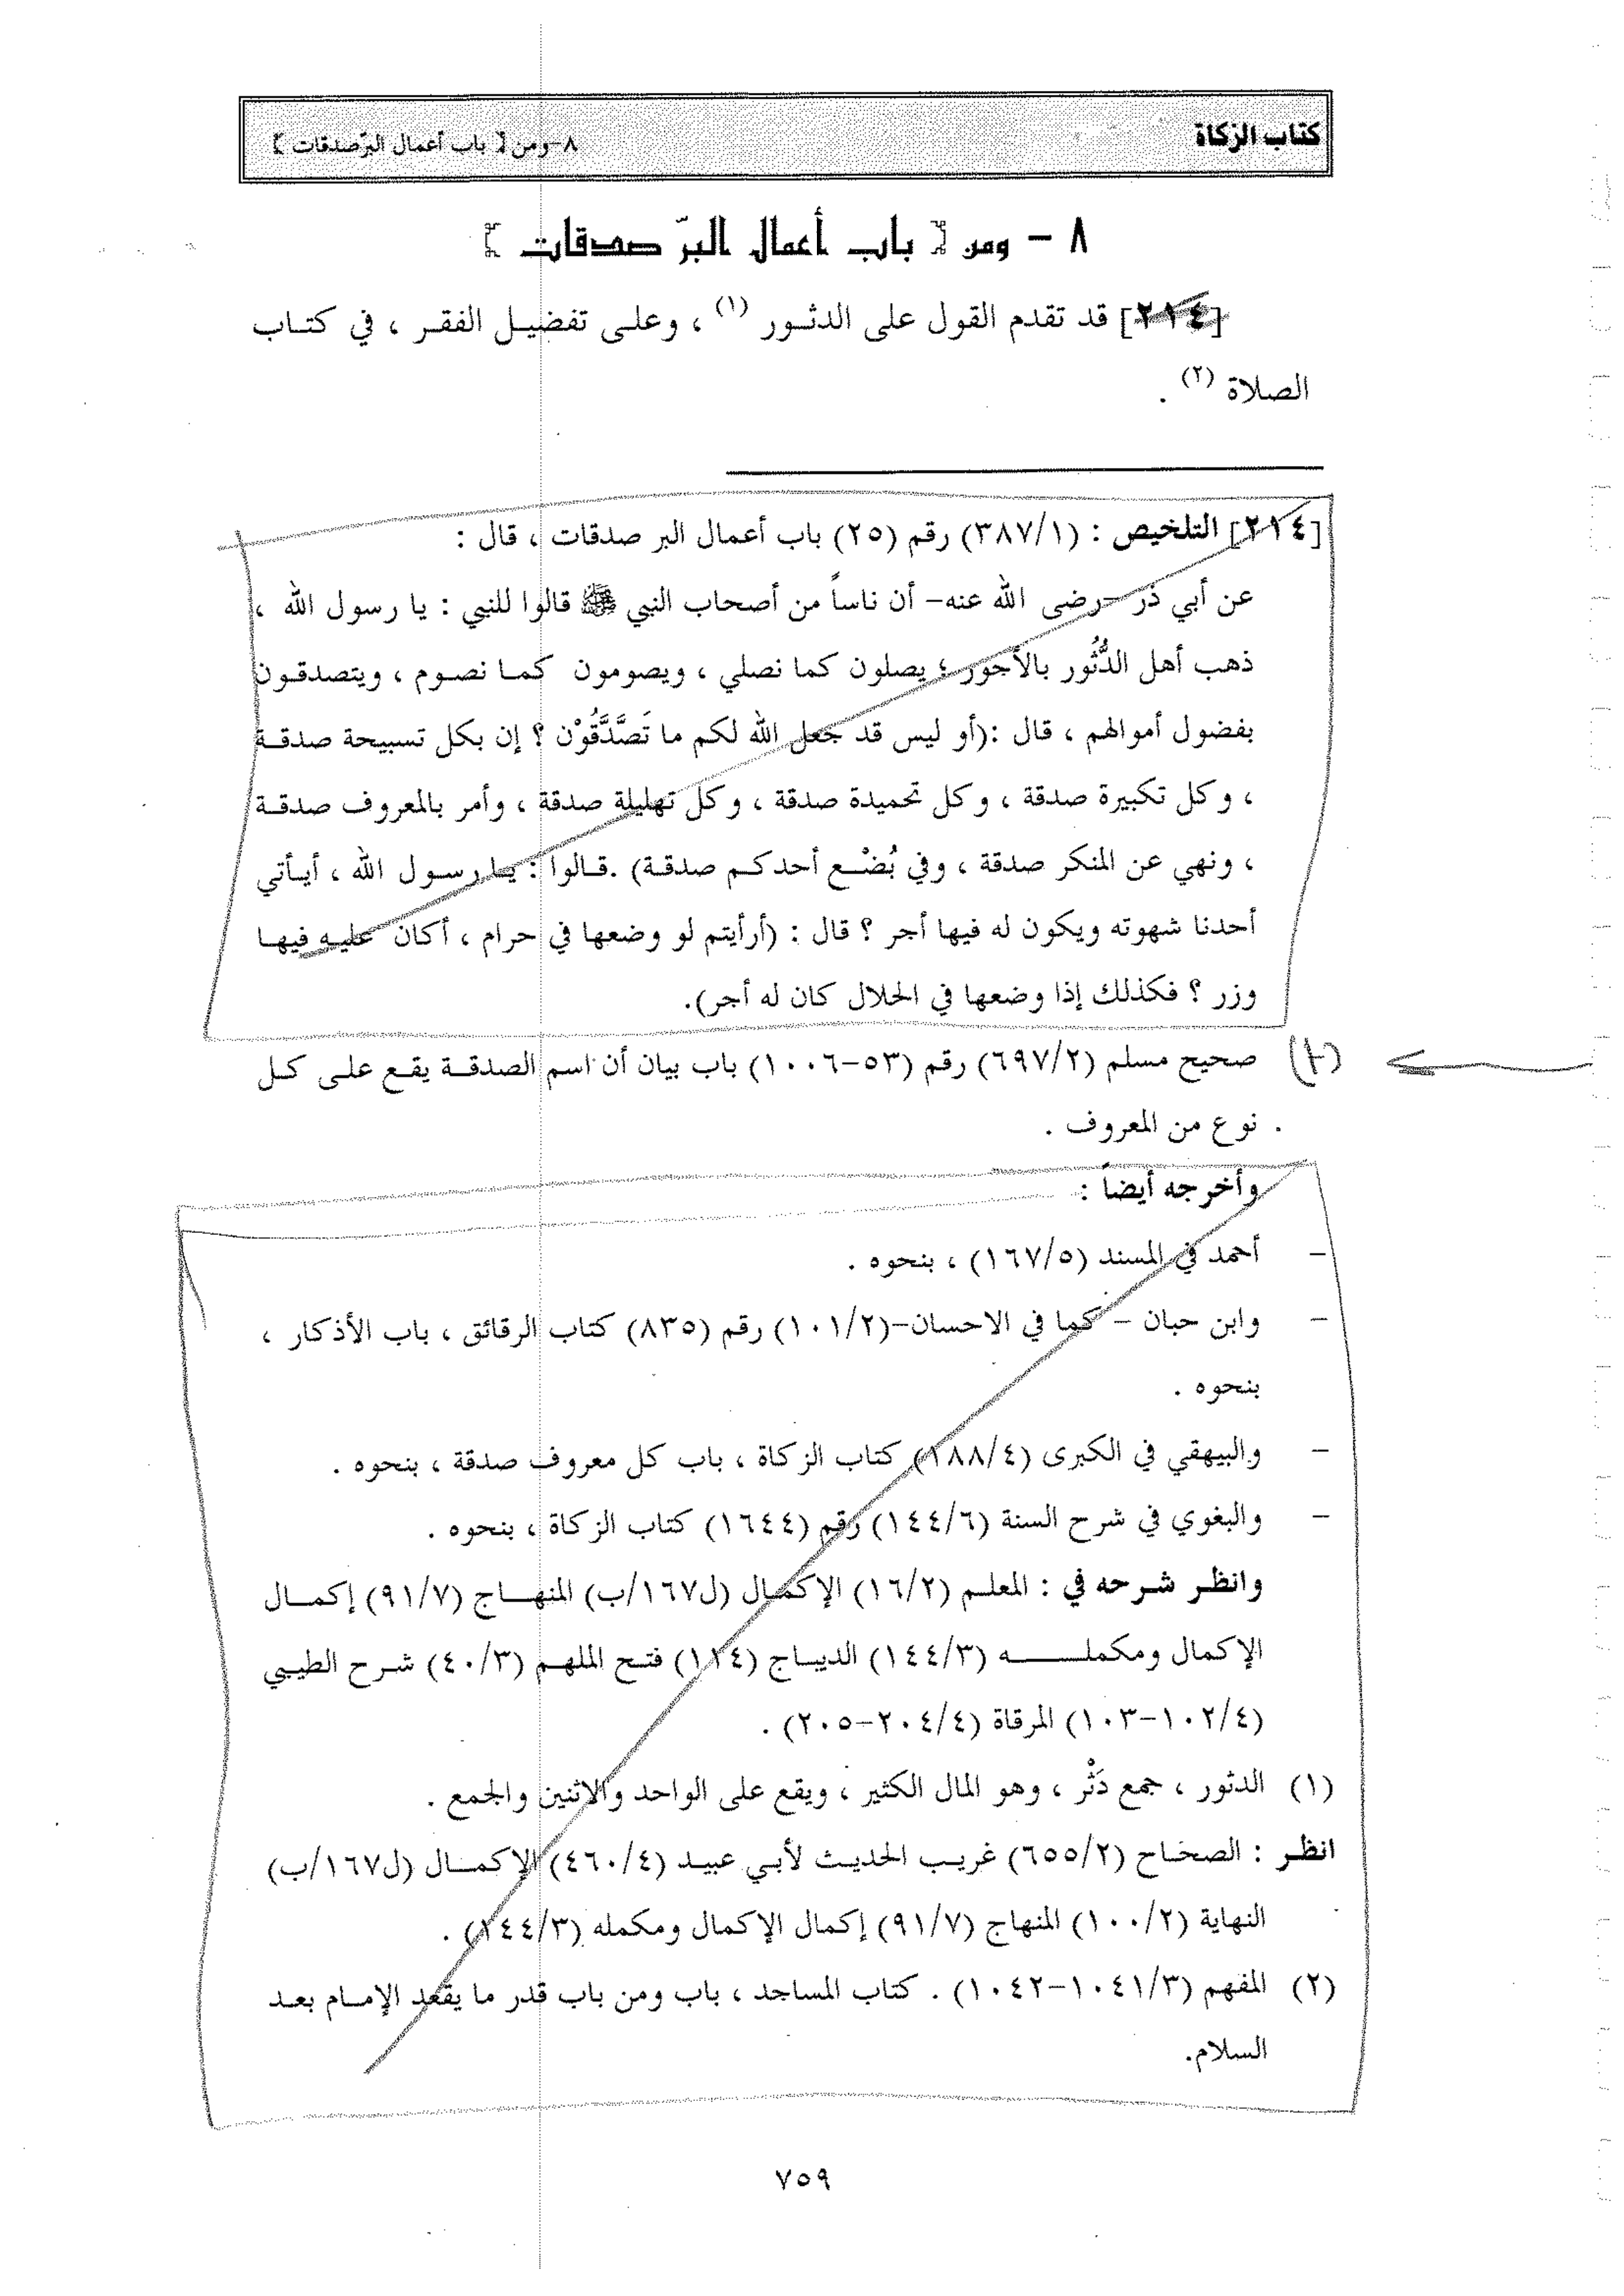 كتاب الزكاة
٨-ومن [ باب أعمال البرّ صدقات ]
٨ - ومن [ باب أعمال البرّ صدقات ]
[٢١٤] قد تقدم القول على الدثور (١) ، وعلى تفضيل الفقر ، في كتاب
الصلاة (٢) .
[٢١٤] التلخيص : (٣٨٧/١) رقم (٢٥) باب أعمال البر صدقات ، قال :
عن أبي ذر -رضى الله عنه- أن ناساً من أصحاب النبي ﷺ قالوا للنبي : يا رسول الله ،
ذهب أهل الدُّثُور بالأجور ؛ يصلون كما نصلي ، ويصومون كما نصوم ، ويتصدقون
بفضول أموالهم ، قال :(أو ليس قد جعل الله لكم ما تَصَّدَّقُوْن ؟ إن بكل تسبيحة صدقة
، وكل تكبيرة صدقة ، وكل تحميدة صدقة ، وكل تهليلة صدقة ، وأمر بالمعروف صدقة
، ونهي عن المنكر صدقة ، وفي بُضْع أحدكم صدقة) .قالوا : يا رسول الله ، أيأتي
أحدنا شهوته ويكون له فيها أجر ؟ قال : (أرأيتم لو وضعها في حرام ، أكان عليه فيها
وزر ؟ فكذلك إذا وضعها في الحلال كان له أجر).
(١) صحيح مسلم (٦٩٧/٢) رقم (٥٣-١٠٠٦) باب بيان أن اسم الصدقة يقع على كل
نوع من المعروف .
وأخرجه أيضاً :
- أحمد في المسند (١٦٧/٥) ، بنحوه .
- وابن حبان - كما في الاحسان-(١٠١/٢) رقم (٨٣٥) كتاب الرقائق ، باب الأذكار ،
بنحوه .
- والبيهقي في الكبرى (١٨٨/٤) كتاب الزكاة ، باب كل معروف صدقة ، بنحوه .
- والبغوي في شرح السنة (١٤٤/٦) رقم (١٦٤٤) كتاب الزكاة ، بنحوه .
وانظر شرحه في : المعلم (١٦/٢) الإكمال (ل١٦٧/ب) المنهاج (٩١/٧) إكمال
الإكمال ومكمله (١٤٤/٣) الديباج (١١٤) فتح الملهم (٤٠/٣) شرح الطيبي
(١٠٢/٤-١٠٣) المرقاة (٢٠٤/٤-٢٠٥) .
(١) الدثور ، جمع دَثْر ، وهو المال الكثير ، ويقع على الواحد والاثنين والجمع .
انظر : الصحاح (٦٥٥/٢) غريب الحديث لأبي عبيد (٤٦٠/٤) الإكمال (ل١٦٧/ب)
النهاية (١٠٠/٢) المنهاج (٩١/٧) إكمال الإكمال ومكمله (١٤٤/٣) .
(٢) المفهم (١٠٤١/٣-١٠٤٢) . كتاب المساجد ، باب ومن باب قدر ما يقعد الإمام بعد
السلام.
٧٥٩